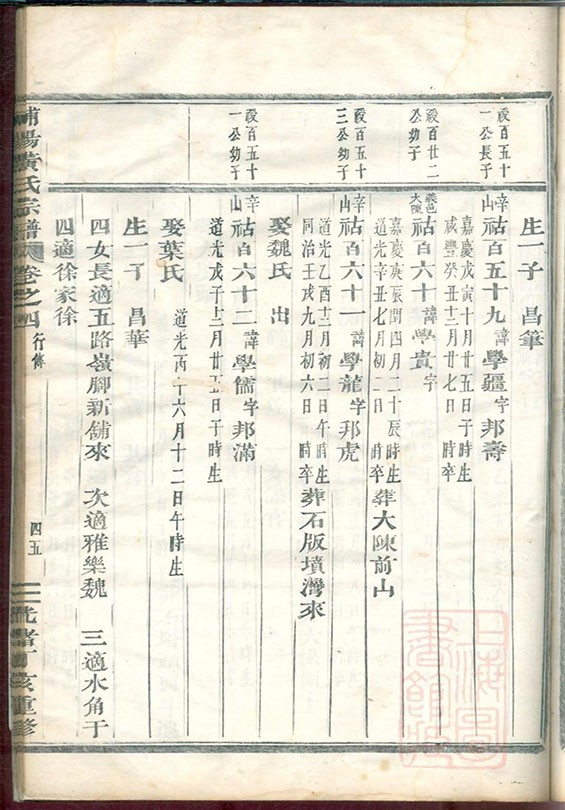 生一子　昌筆
祿百五十一公長子
辛山祜百五十九諱學疆字邦壽
嘉慶戊寅十月廿五日子時生
咸豐癸丑三月廿七日　時卒
祿百廿二公幼子
義邑大陳祜百六十諱學貴字
嘉慶庚辰閏四月二十辰時生
道光辛丑七月初二日　時卒
葬大陳前山
祿百五十三公幼子
辛山祜百六十一諱學龍字邦虎
道光乙酉十二月初二日午時生
同治壬戌九月初六日　時卒
葬石版墳灣來
娶魏氏　出
祿百五十一公幼子
辛山祜百六十二諱學儒字邦滿
道光戊子十二月廿五日子時生
娶葉氏　道光丙午六月十二日午時生
生一子　昌華
四女長適五路嶺腳新舖來　次適雅樂魏　三適水角于
四適徐家徐
浦陽黃氏宗譜　卷之四　行傳　四五　光緒丁亥重修
上海圖書館藏